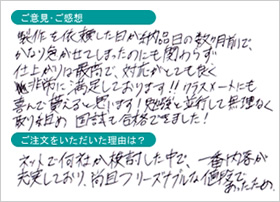 ご意見・ご感想
製作を依頼した日が納品日の数ヶ月前で、
かなり急がせてしまったのにも関わらず
仕上がりは最高で、対応がとても良く
非常に満足しております!!クラスメートにも
喜んで貰えると思います!勉強と並行して無理なく
取り組め 国試も合格できました!
ご注文をいただいた理由は?
ネットで何社か検討した中で、一番内容が
充実しており、尚且つリーズナブルな価格で
あったため。